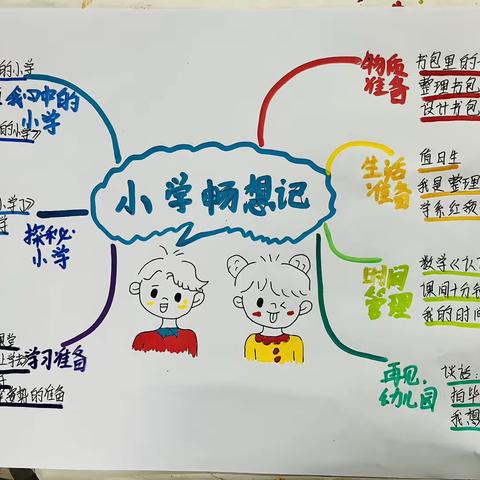 小学畅想记
的小学
我心中的
小学
的小学》
小学》
探秘
小学
课堂
学习准备
的准备
物质
准备
书包里的
整理书包
设计书包
生活
准备
值日生
我是整理
学系红领
时间
管理
数学《
课间十分
我的时间
再见,
幼儿园
谈话:
拍毕
我想